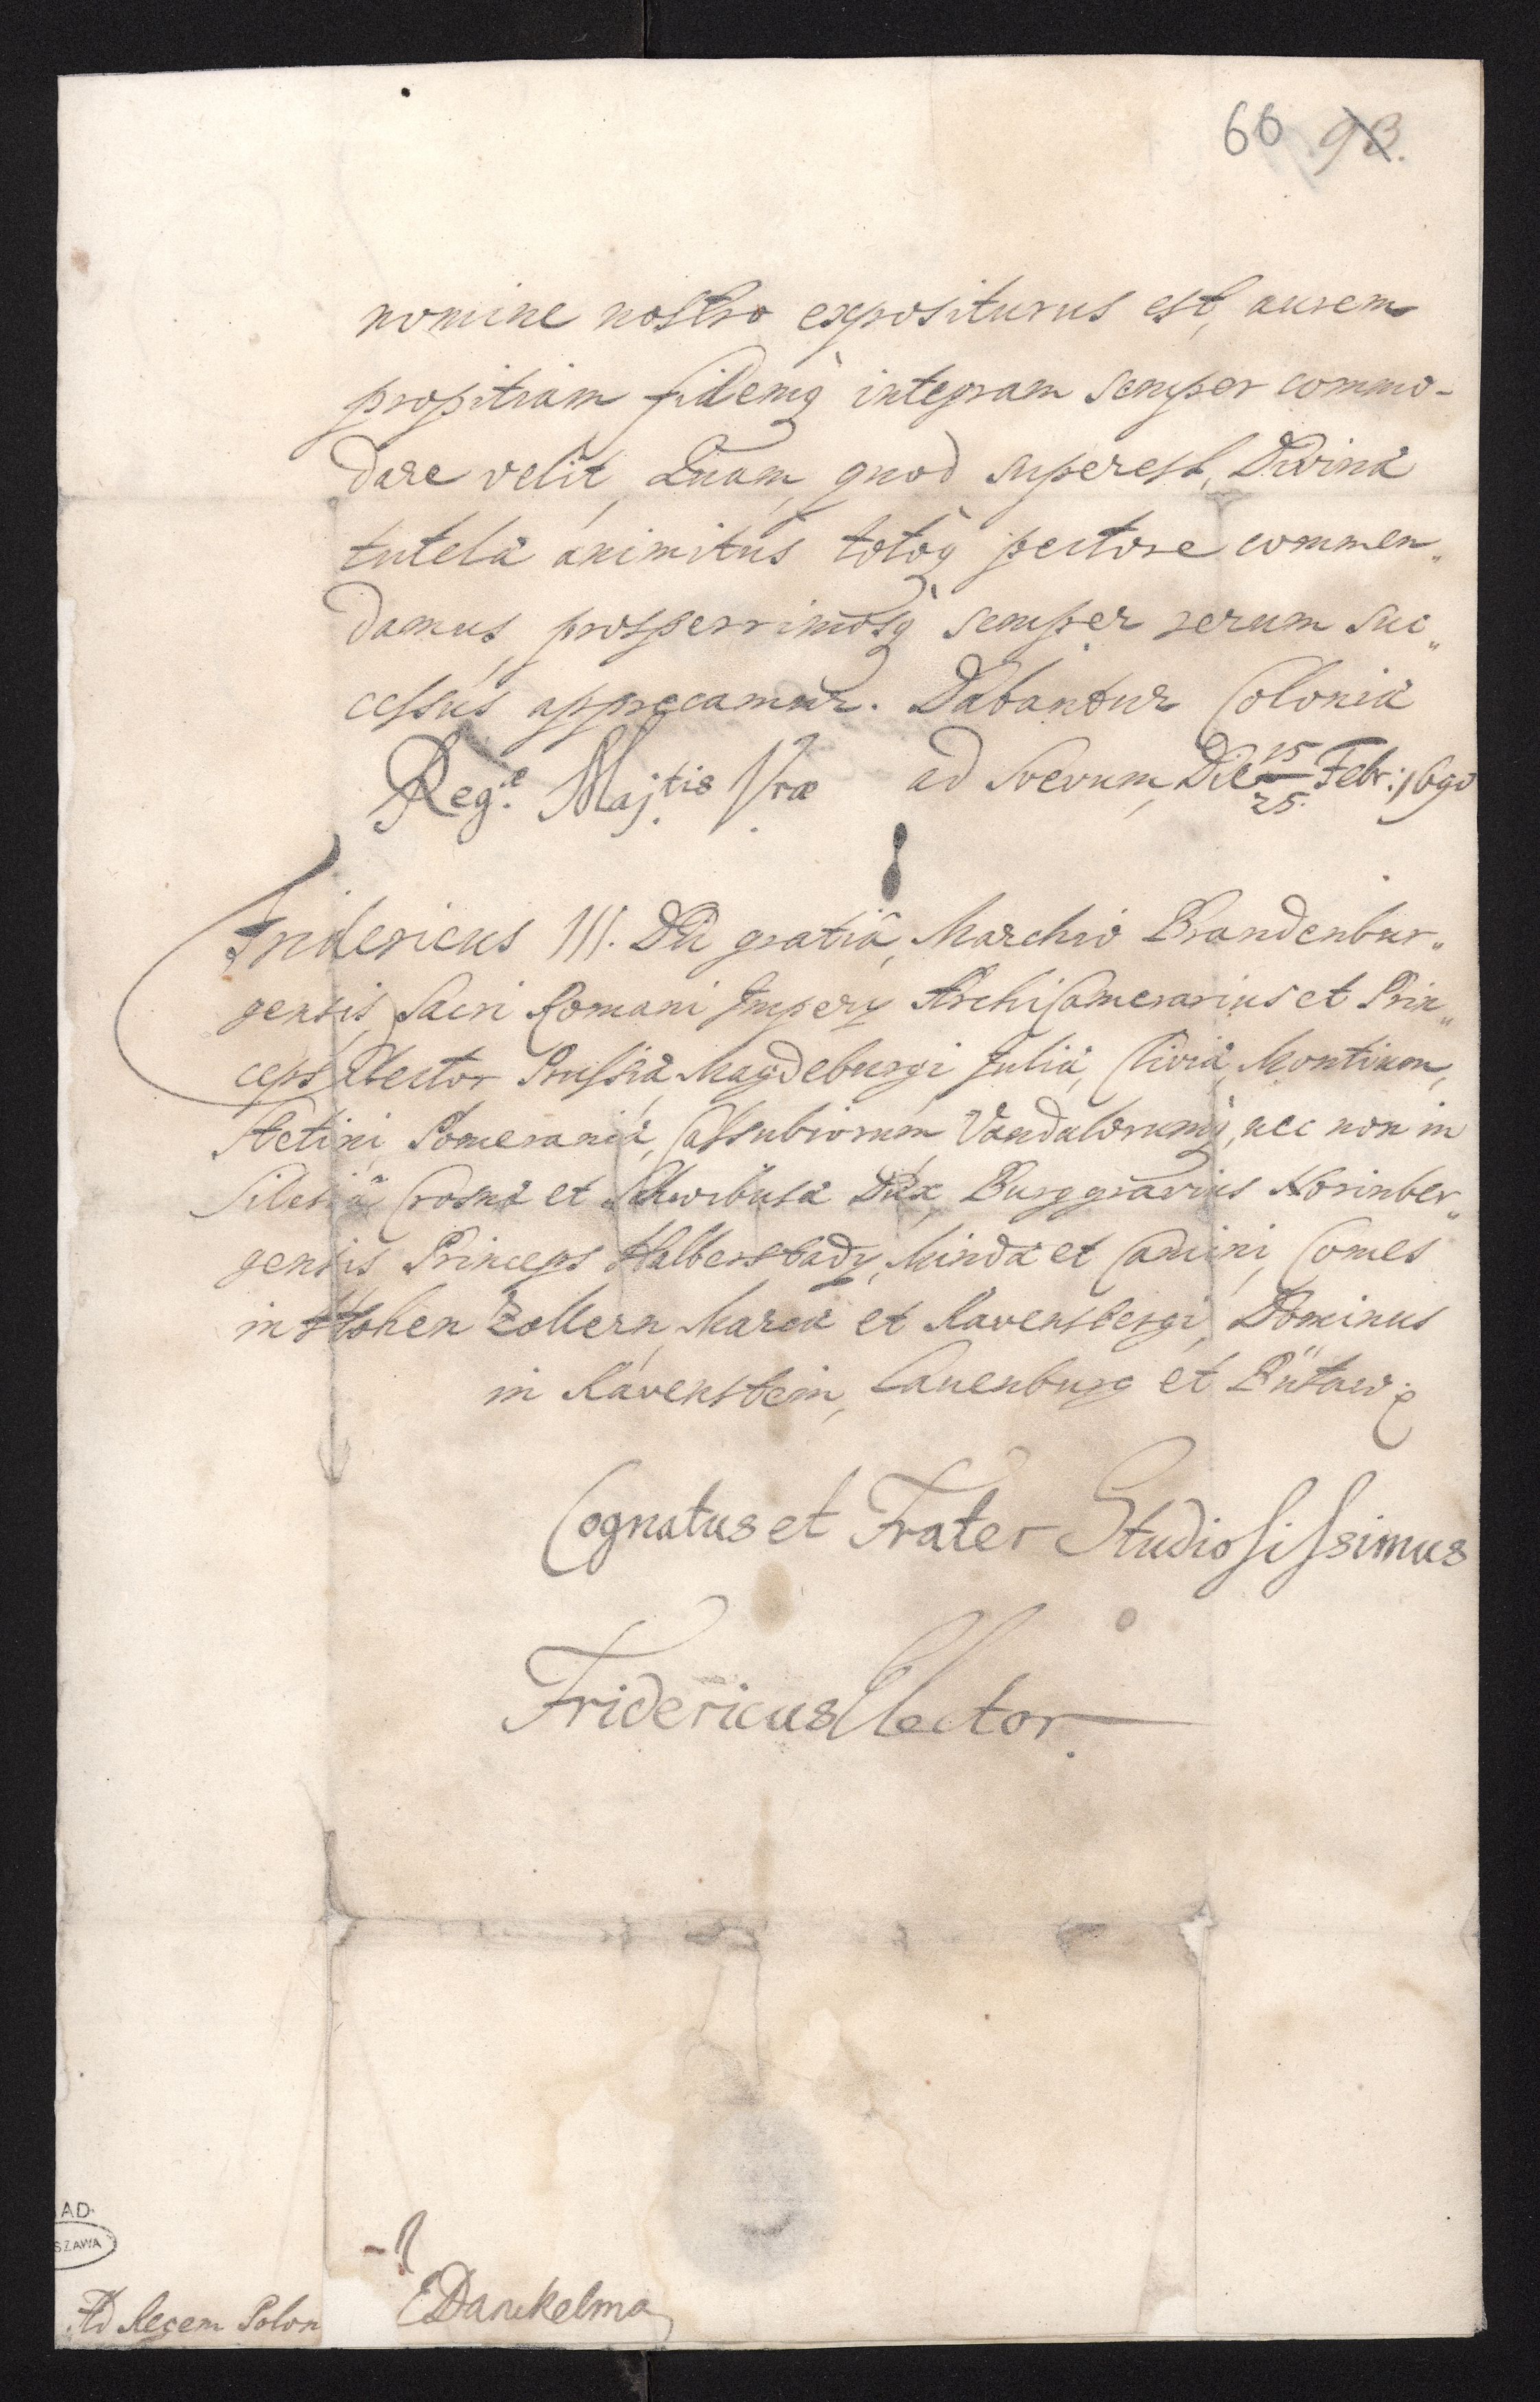 66 93.
nomine nostro expositurus est, aurem
propitiam fidemq́ integram semper commo-
dare velit, Quam, quod superest, Divinæ
tutelæ animitùs totoq́ pectore commen„
damus, prosperrimosq́ semper rerum suc„
cessus apprecamur. Dabantur Coloniæ
Reg.æ Maj.tis Vræ ad Svevum, Die 15/25. Febr: 1690
Fridericus III. Dei gratiâ, Marchio Brandenbur„
gensis, Sacri Romani Imperij ArchiCamerarius et Prin„
ceps Elector, Prussiæ, Magdeburgi, Juliæ, Cliviæ, Montium,
Stetini, Pomeraniæ, Cassubiorum, Vandalorumq́, nec non in
Silesiâ Crosnæ et Schwibusæ Dux, Burggravius Norinber„
gensis, Princeps Halberstadij, Mindæ et Camini, Comes
in Hohen Zollern, Marcæ et Ravensbergi, Dominus
in Ravenstein, Lauenburg et Bütaw
Cognatus et Frater Studiosissimus
Fridericus Elector.
AD.
SZAWA
Ad Regem Polon
EDanckelman